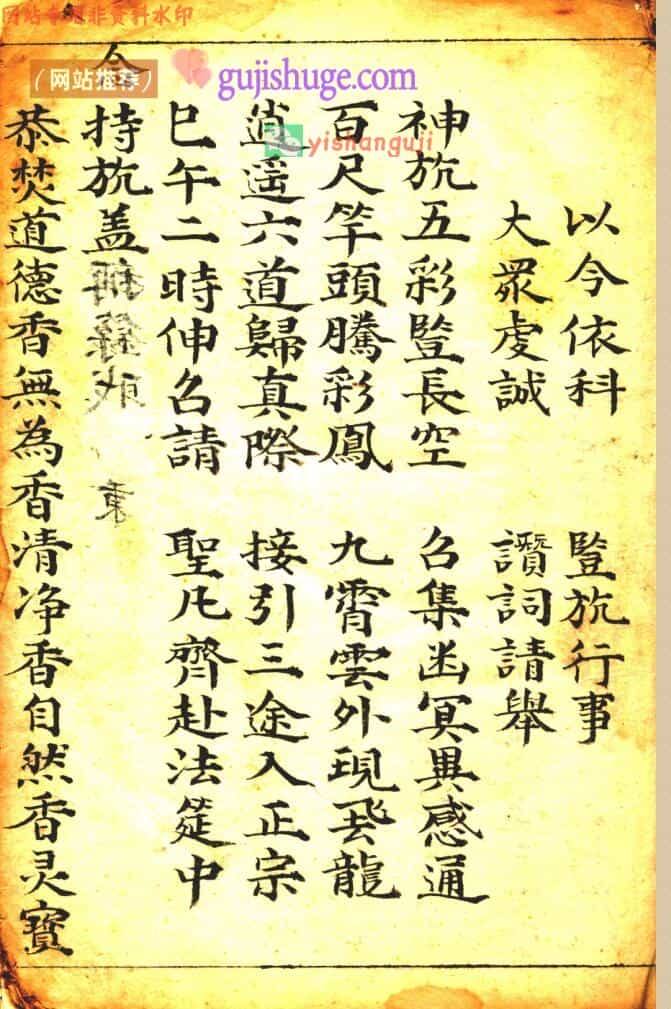 以今依科 豎旂行事
大眾虔誠 讚詞請舉
神旂五彩豎長空 召集幽冥異感通
百尺竿頭騰彩鳳 九霄雲外現飛龍
逍遥六道歸真際 接引三途入正宗
巳午二時伸召請 聖凡齊赴法筵中
持旂盖
恭焚道德香無為香清净香自然香灵寶
(网站推荐)
gujishuge.com
yishanguji